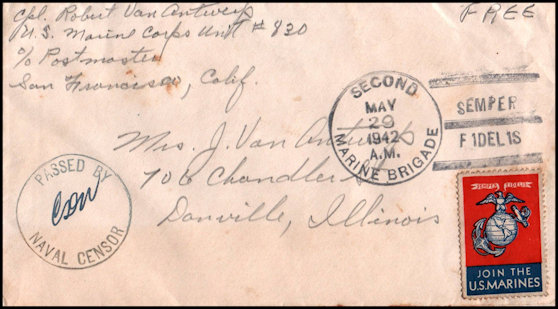 Cpl. Robert Van Antwerp
U.S. Marine Corps Unit # 820
c/o Postmaster
San Francisco, Calif.
FREE
SECOND
MAY
29
1942
A.M.
MARINE BRIGADE
SEMPER
F1DEL1S
Mrs. J. Van Antwerp
706 Chandler
Danville, Illinois
PASSED BY
NAVAL CENSOR
SEMPER FIDELIS
JOIN THE
U.S.MARINES